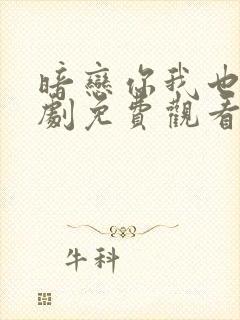 暗戀你我也
劇免費觀看
牛科